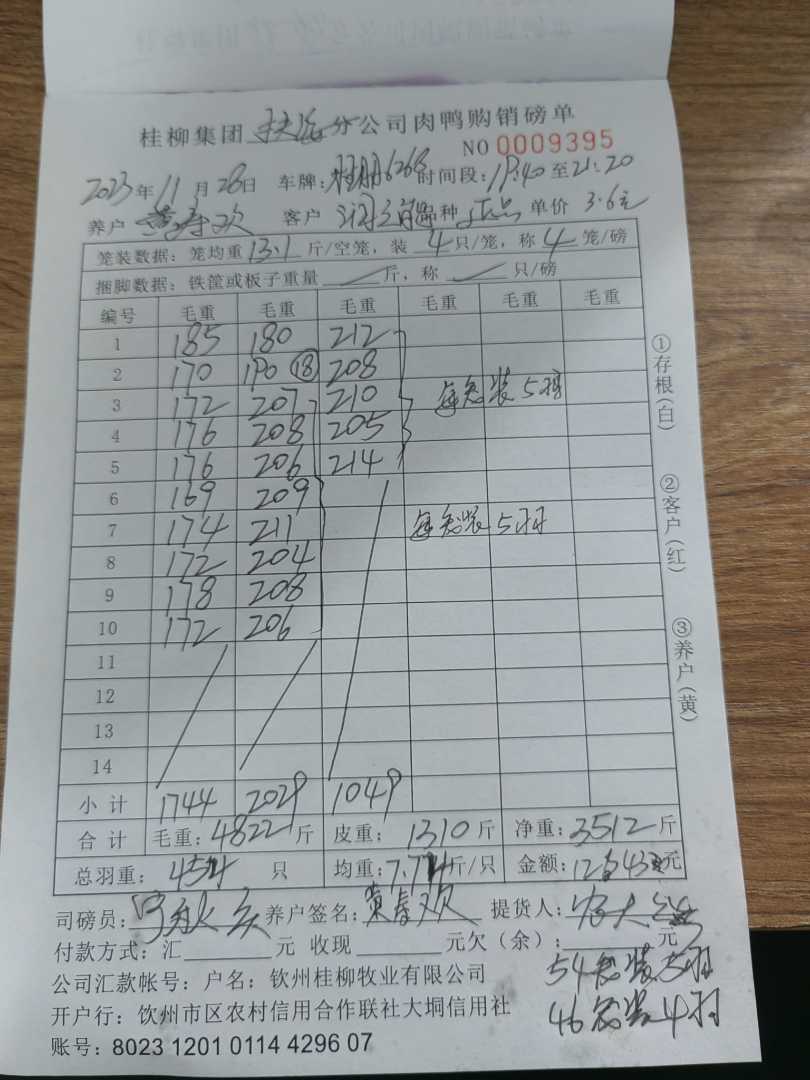 桂柳集团扶绥分公司肉鸭购销磅单
NO 0009395
2023年11月28日 车牌:桂 6268 时间段:19:40至21:20
养户 黄春欢 客户 品种 正品 单价 3.6元
笼装数据: 笼均重13.1斤/空笼, 装4只/笼, 称4笼/磅
捆脚数据: 铁筐或板子重量 斤, 称 只/磅
编号 毛重 毛重 毛重 毛重 毛重 毛重
1 185 180 212
2 170 190 ⑱ 208
3 172 207 210 每笼装5羽
4 176 208 205
5 176 206 214
6 169 209
7 174 211 每笼装5羽
8 172 204
9 178 208
10 172 206
11
12
13
14
小计 1744 2029 1049
合计 毛重:4822斤 皮重:1310斤 净重:3512斤
总羽重:454只 均重:7.74斤/只 金额:12643元
司磅员: 养户签名:黄春欢 提货人:
付款方式:汇 元 收现 元欠(余): 元
54笼装5羽
公司汇款帐号: 户名: 钦州桂柳牧业有限公司
46笼装4羽
开户行: 钦州市区农村信用合作联社大垌信用社
账号: 8023 1201 0114 4296 07
①存根(白)
②客户(红)
③养户(黄)